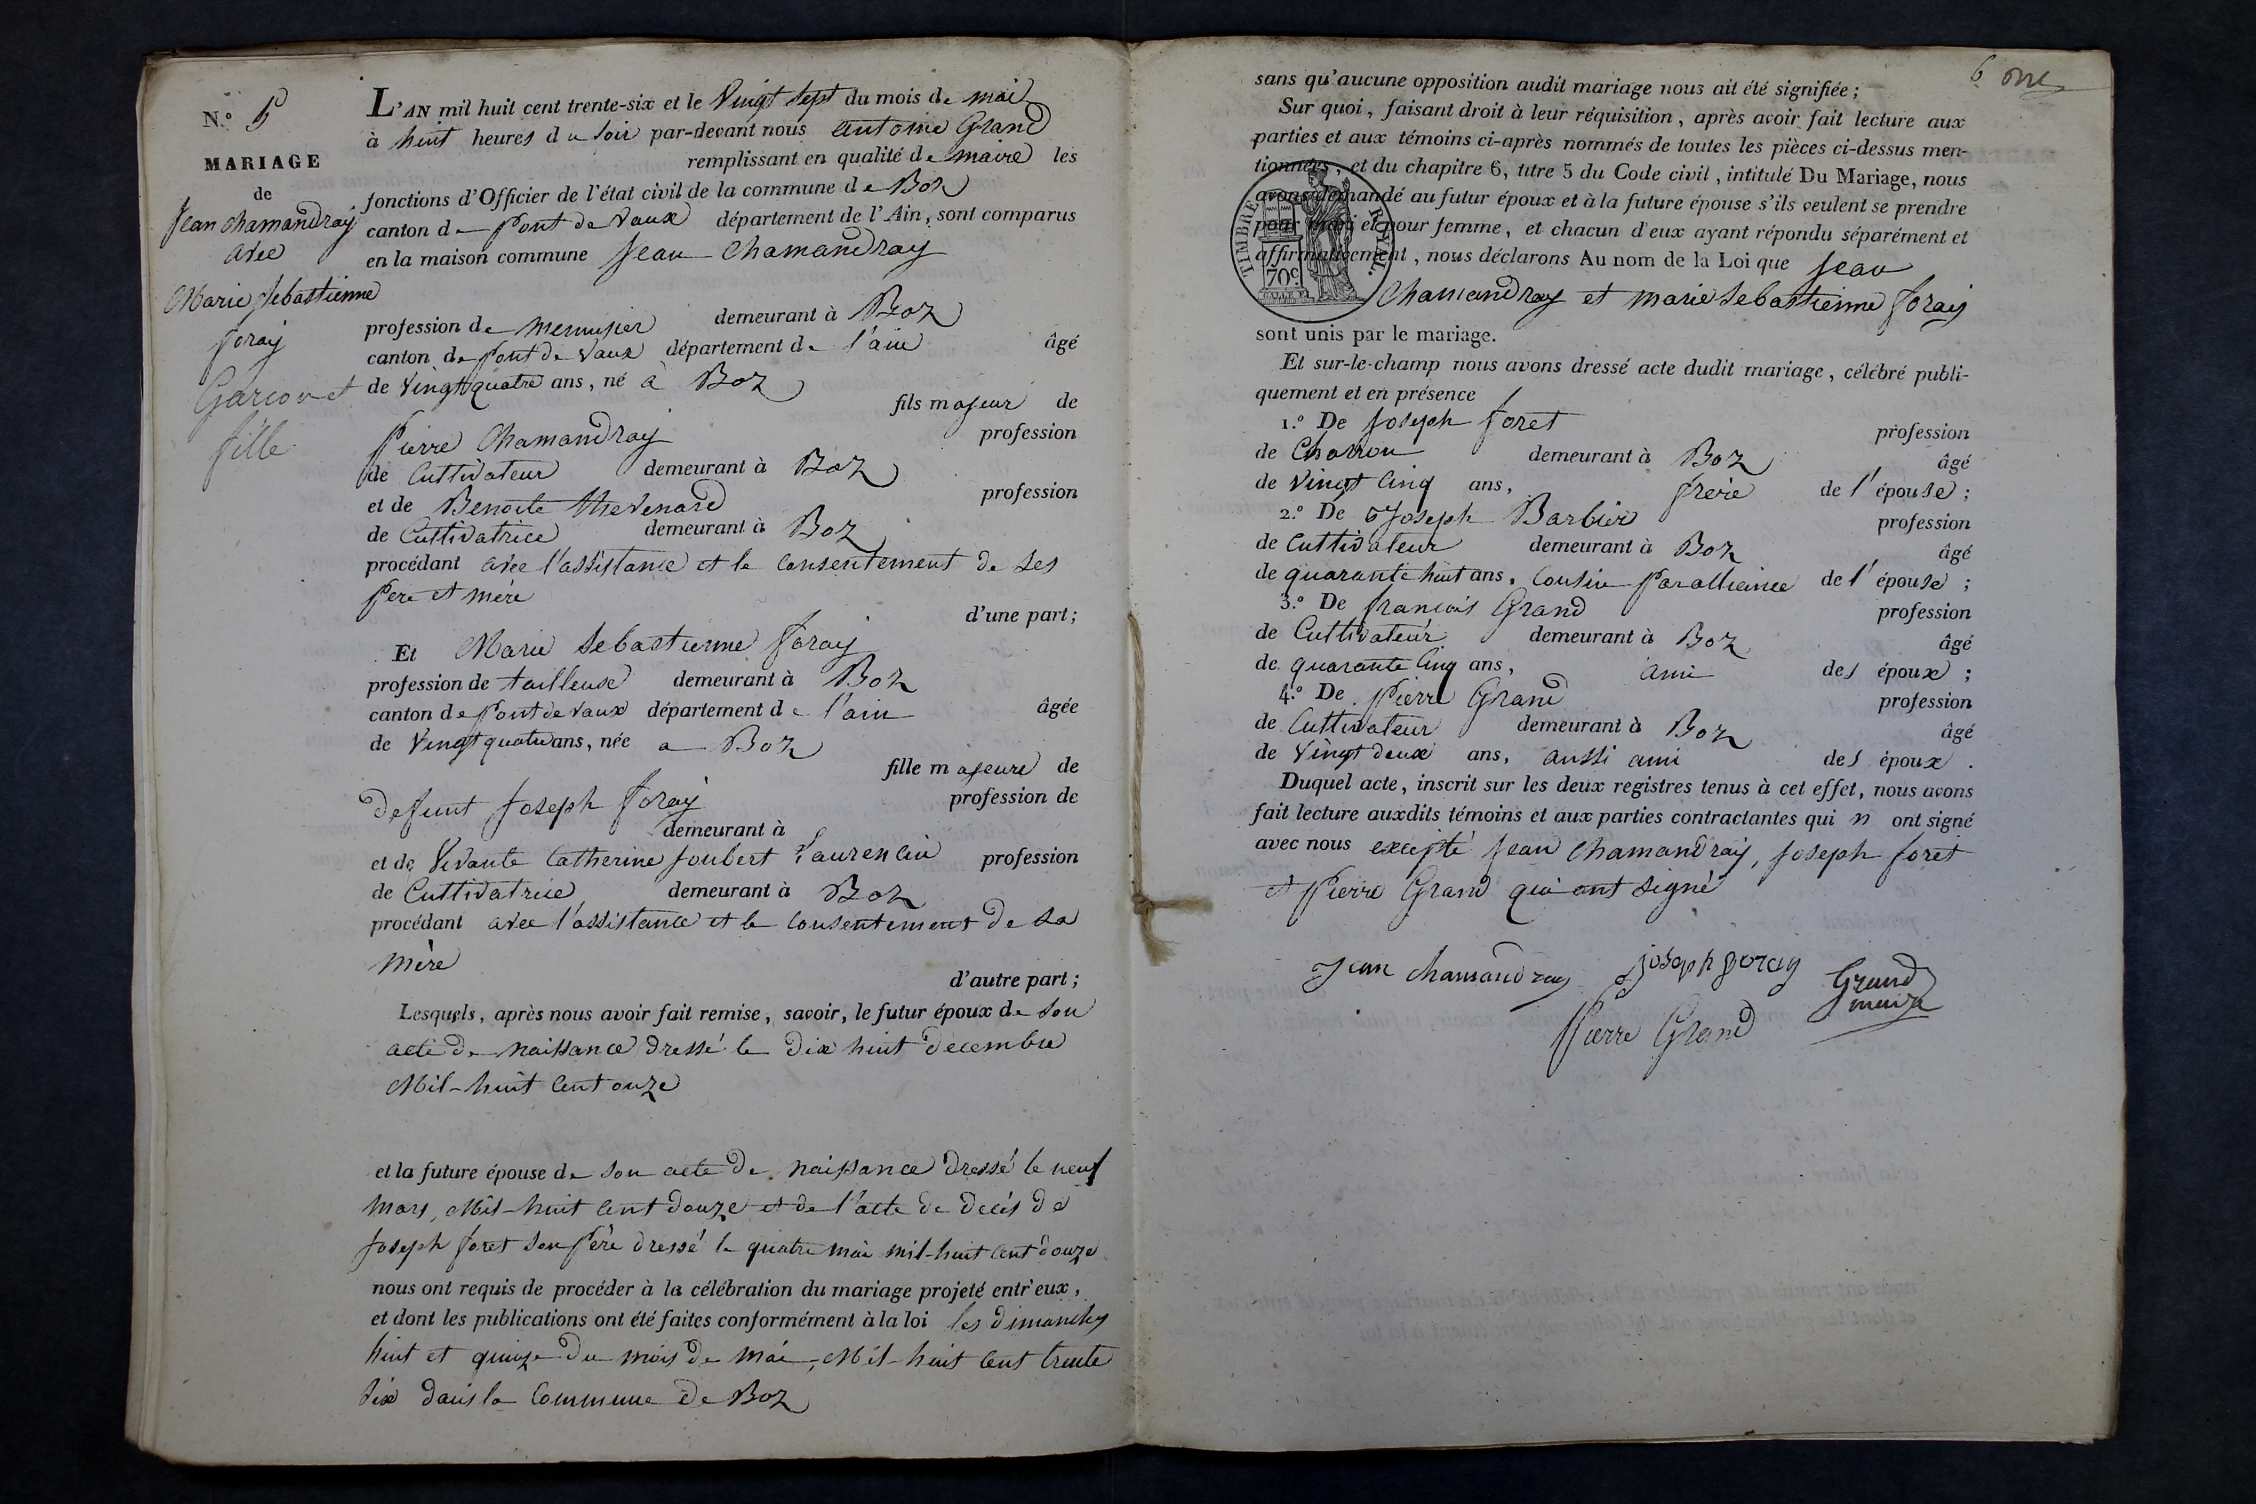 N.° 5
MARIAGE
de
Jean Chamandray
avec
Marie Sebastienne
foray
Garcon et
fille
L'AN mil huit cent trente-six et le Vingt sept du mois de mai
à huit heures du soir par-devant nous antoine Grand
remplissant en qualité de maire les
fonctions d'Officier de l'état civil de la commune de Boz
canton de Pont de Vaux département de l'Ain, sont comparus
en la maison commune Jean Chamandray
profession de menuisier demeurant à Boz
canton de Pont de Vaux département de l'ain âgé
de Vingt quatre ans, né à Boz
fils majeur de
Pierre Chamandray profession
de Cultivateur demeurant à Boz
et de Benoite thevenard profession
de Cultivatrice demeurant à Boz
procédant avec l'assistance et le consentement de ses
Pere et mère
d'une part;
Et Marie Sebastienne foray
profession de tailleuse demeurant à Boz
canton de Pont de Vaux département de l'ain âgée
de Vingt quatre ans, née a Boz
fille majeure de
defunt Joseph foray profession de
demeurant à
et de Vivante Catherine Joubert Laurencin profession
de Cultivatrice demeurant à Boz
procédant avec l'assistance et le consentement de sa
mère
d'autre part;
Lesquels, après nous avoir fait remise, savoir, le futur époux de son
acte de naissance dressé le dix huit decembre
Mil-huit cent onze
et la future épouse de son acte de naissance dressé le neuf
mars, Mil-huit cent douze et de l'acte de decés de
Joseph foret son Père dressé le quatre mai mil-huit cent douze
nous ont requis de procéder à la célébration du mariage projeté entr'eux,
et dont les publications ont été faites conformément à la loi les dimanches
huit et quinze du mois de mai, Mil-huit cent trente
six dans la Commune de Boz
6
sans qu'aucune opposition audit mariage nous ait été signifiée;
Sur quoi, faisant droit à leur réquisition, après avoir fait lecture aux
parties et aux témoins ci-après nommés de toutes les pièces ci-dessus men-
tionnées, et du chapitre 6, titre 5 du Code civil, intitulé Du Mariage, nous
avons demandé au futur époux et à la future épouse s'ils veulent se prendre
pour mari et pour femme, et chacun d'eux ayant répondu séparément et
affirmativement, nous déclarons Au nom de la Loi que Jean
Chamandray et marie Sebastienne foray
TIMBRE ROYAL.
70c.
sont unis par le mariage.
Et sur-le-champ nous avons dressé acte dudit mariage, célébré publi-
quement et en présence
1.° De Joseph foret profession
de Charron demeurant à Boz âgé
de Vingt Cinq ans, frere de l'épouse;
2.° De Joseph Barbier profession
de Cultivateur demeurant à Boz âgé
de quarante huit ans, Cousin Par alliance de l'épouse;
3.° De francois Grand profession
de Cultivateur demeurant à Boz âgé
de quarante Cinq ans, ami des époux;
4.° De Pierre Grand profession
de Cultivateur demeurant à Boz âgé
de Vingt deux ans, aussi ami des époux.
Duquel acte, inscrit sur les deux registres tenus à cet effet, nous avons
fait lecture auxdits témoins et aux parties contractantes qui n ont signé
avec nous excepté Jean Chamandray, Joseph foret
et Pierre Grand qui ont signé
Jean chamandray Joseph foray Grand
maire
Pierre Grand